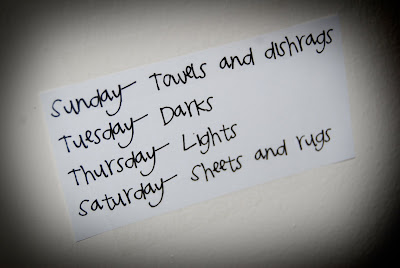 Sunday– Towels and dishrags
Tuesday– Darks
Thursday– Lights
Saturday– Sheets and rugs